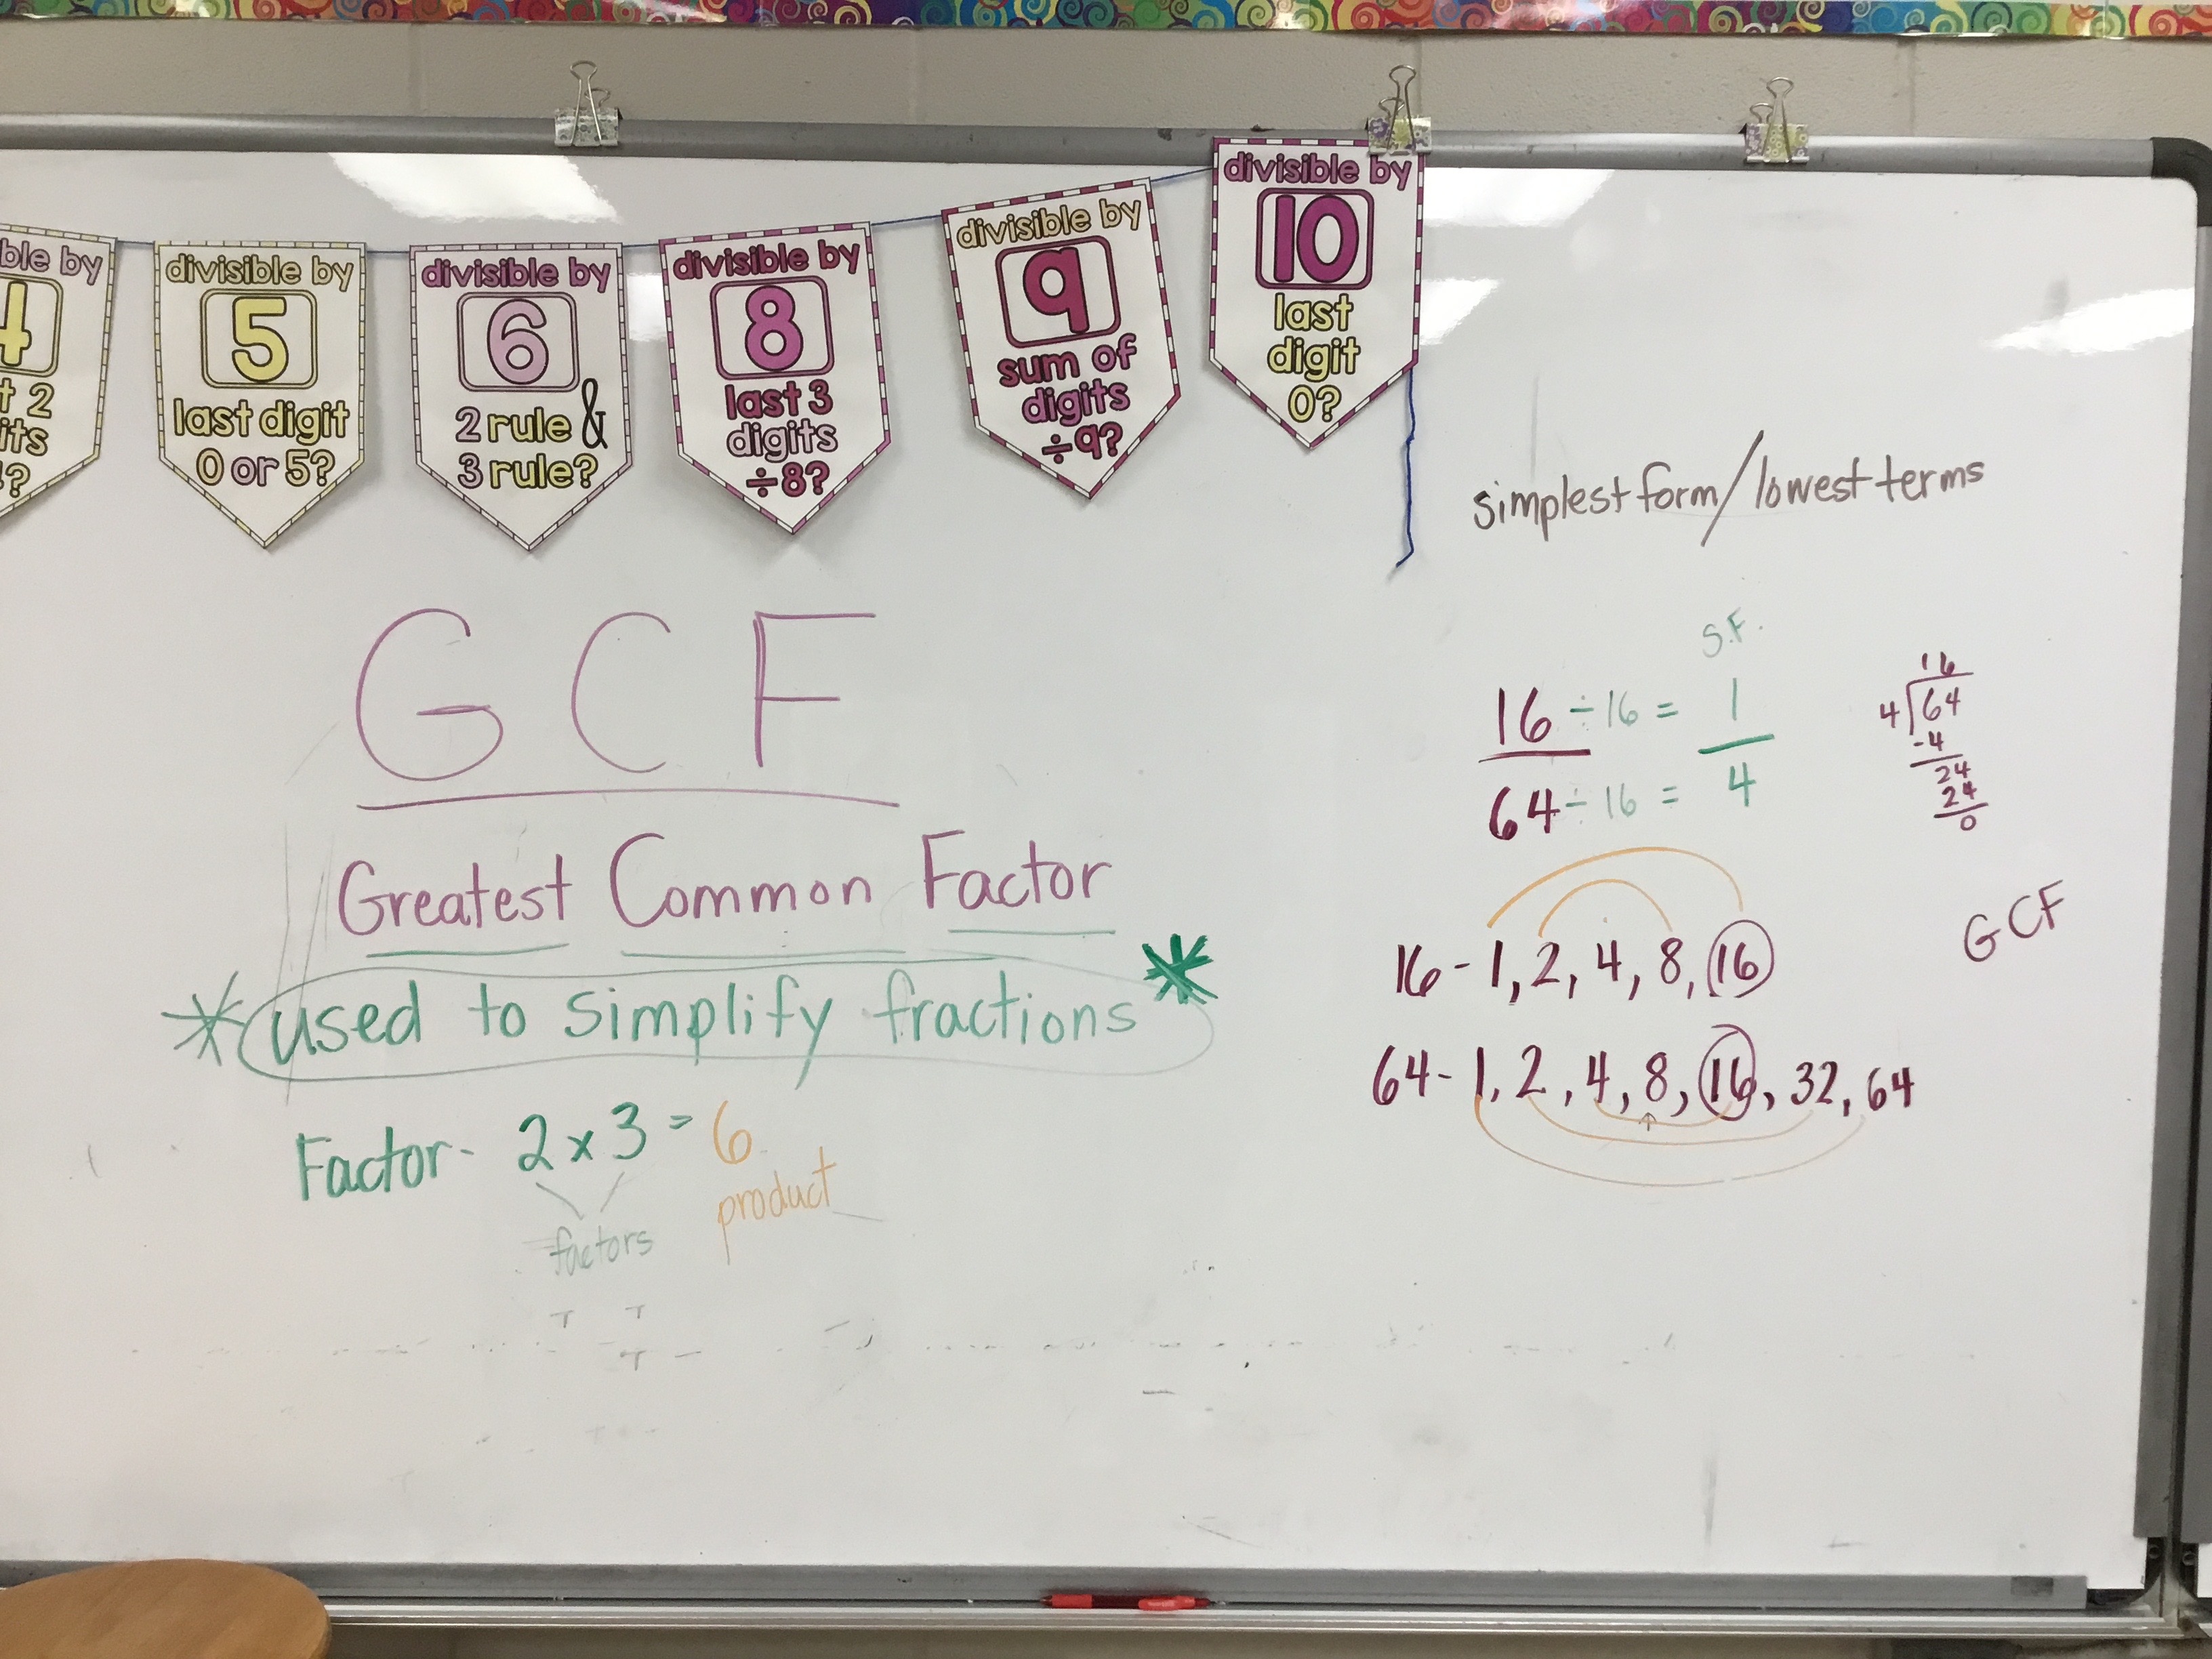 ble by
4
t 2
its
4?
divisible by
5
last digit
0 or 5?
divisible by
6
2 rule &
3 rule?
divisible by
8
last 3
digits
÷8?
divisible by
9
sum of
digits
÷9?
divisible by
10
last
digit
0?
GCF
Greatest Common Factor
*used to simplify fractions*
Factor- 2 x 3 = 6
factors
product
simplest form/lowest terms
S.F.
16 ÷ 16 = 1
64 ÷ 16 = 4
16
4 64
-4
24
24
0
GCF
16 - 1, 2, 4, 8, 16
64 - 1, 2, 4, 8, 16, 32, 64